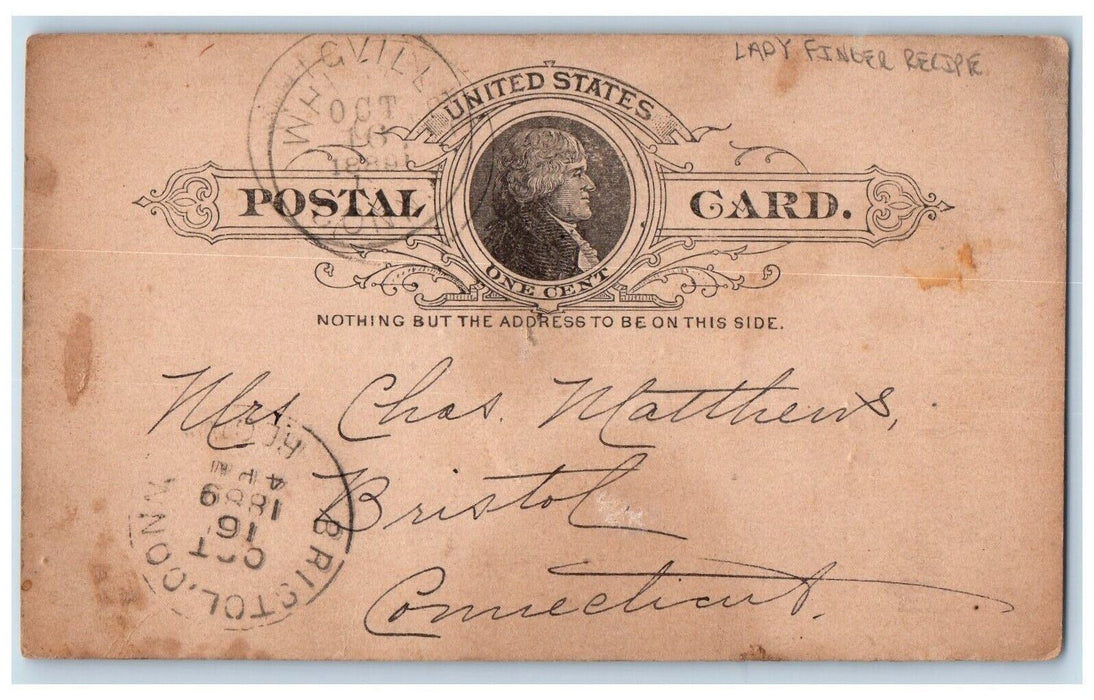 LADY FINGER RECIPE
WHIGVILLE
OCT
16
1889
CONN
UNITED STATES
POSTAL CARD.
ONE CENT
NOTHING BUT THE ADDRESS TO BE ON THIS SIDE.
Mrs. Chas. Matthews,
Bristol
Connecticut.
BRISTOL, CONN.
OCT
16
1889
4 PM